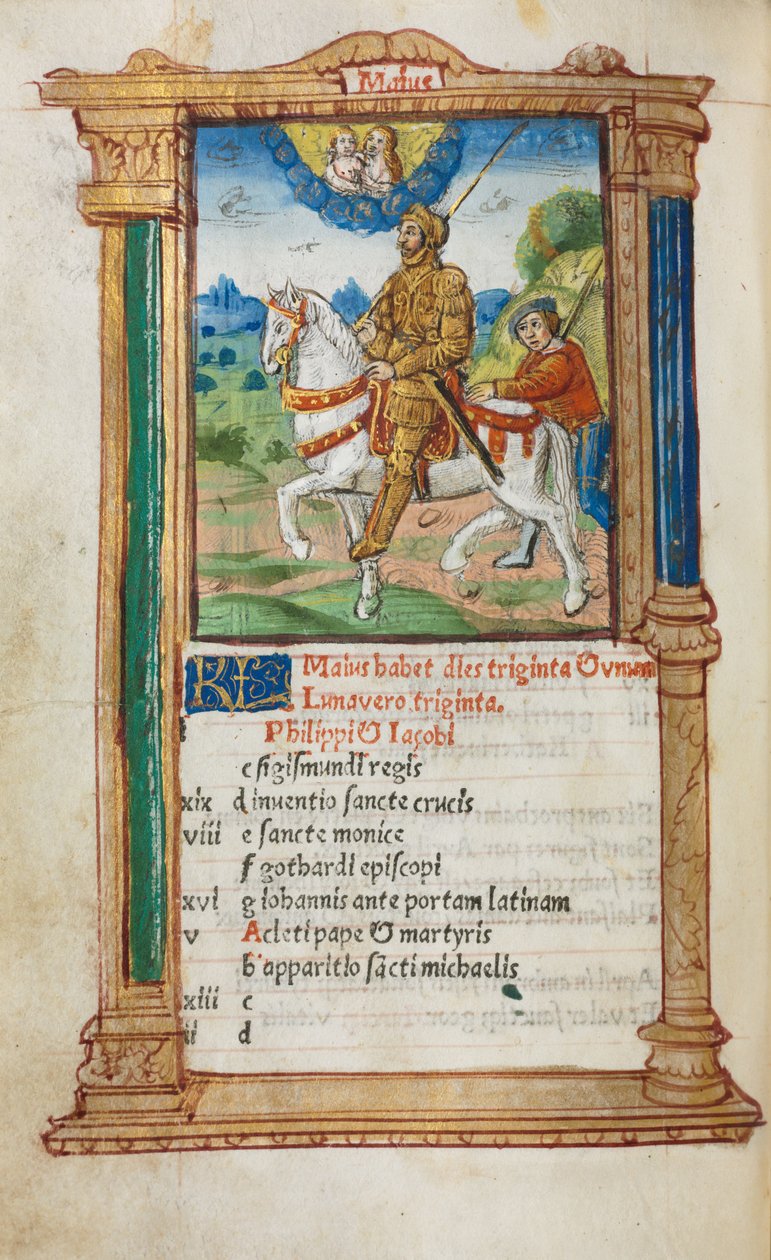 Maius
KL Maius habet dies triginta & vnum
Luna vero .triginta.
i Philippi & Iacobi
c sigismundi regis
xix d inuentio sancte crucis
viii e sancte monice
f gothardi episcopi
xvi g iohannis ante portam latinam
v A cleti pape & martyris
b apparitio sācti michaelis
xiii c
ii d